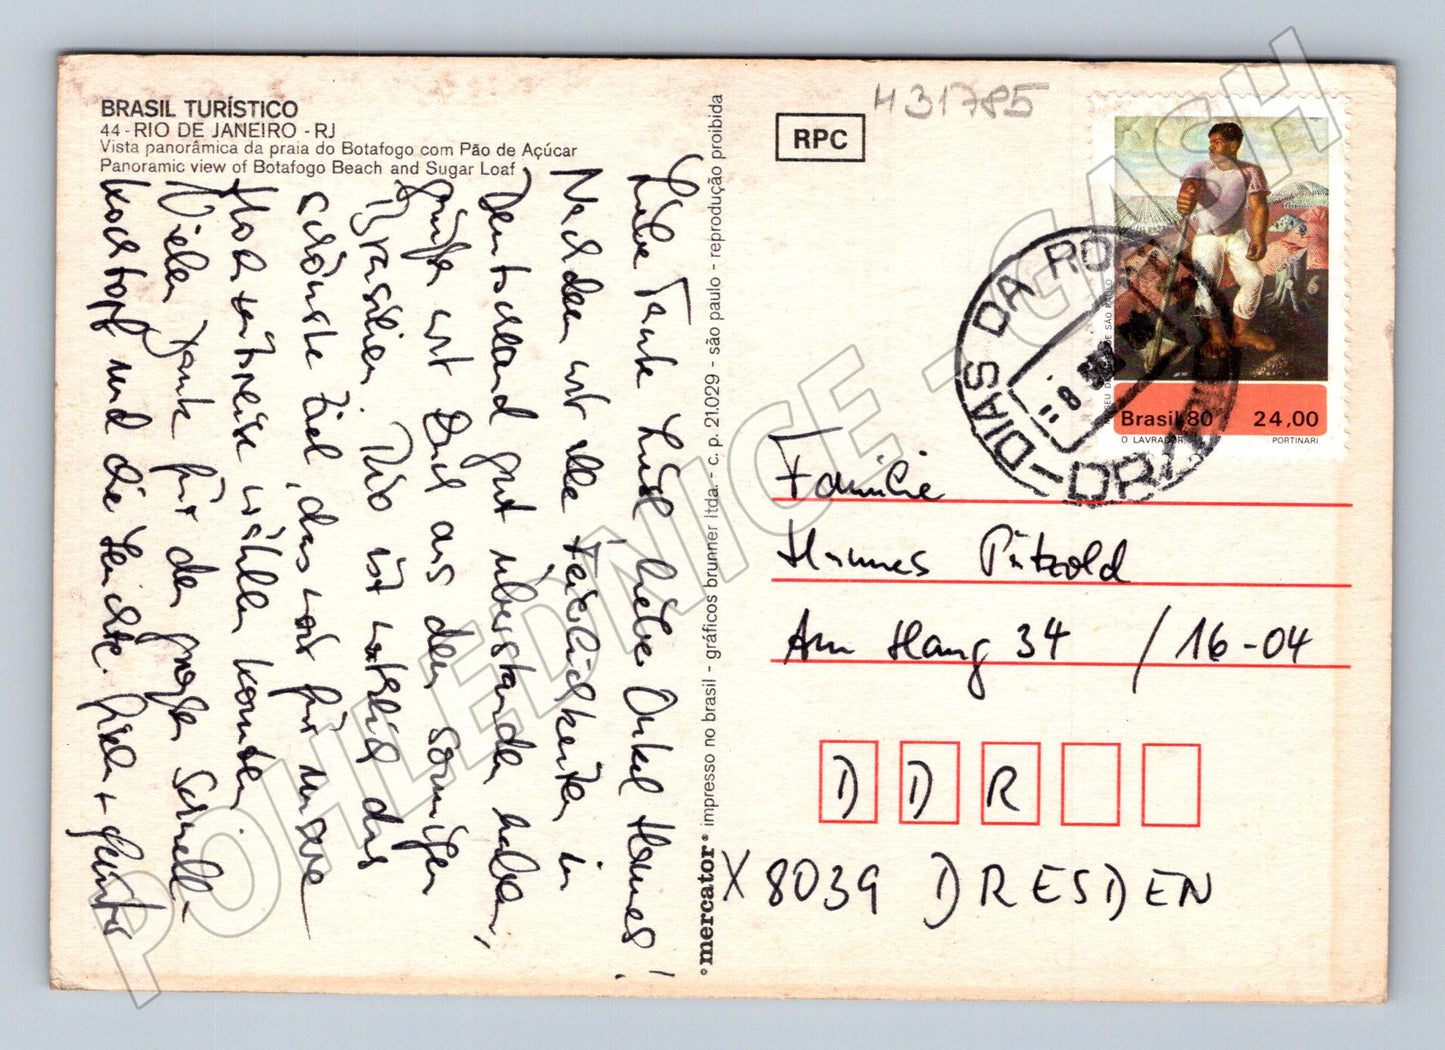 BRASIL TURÍSTICO
44 - RIO DE JANEIRO - RJ
Vista panorâmica da praia do Botafogo com Pão de Açúcar
Panoramic view of Botafogo Beach and Sugar Loaf
Liebe Tante Liesl, lieber Onkel Hannes!
Nachdem wir alle Feierlichkeiten in
Deutschland gut überstanden haben,
Grüße wir Euch aus dem sonnigen
Brasilien. Rio ist wirklich das
schönste Ziel, das wir für unsere
Hochzeitsreise wählen konnten.
Vielen Dank für den großen Schnell-
kochtopf und die Leuchte.
°mercator® impresso no brasil - gráficos brunner ltda. - c. p. 21.029 - são paulo - reprodução proibida
RPC
H31785
DIAS DA
Brasil 80 24,00
O LAVRADOR PORTINARI
Familie
Hannes Pätzold
Am Hang 34 / 16-04
D D R
X 8039 DRESDEN
POHLEDNICE - GASH